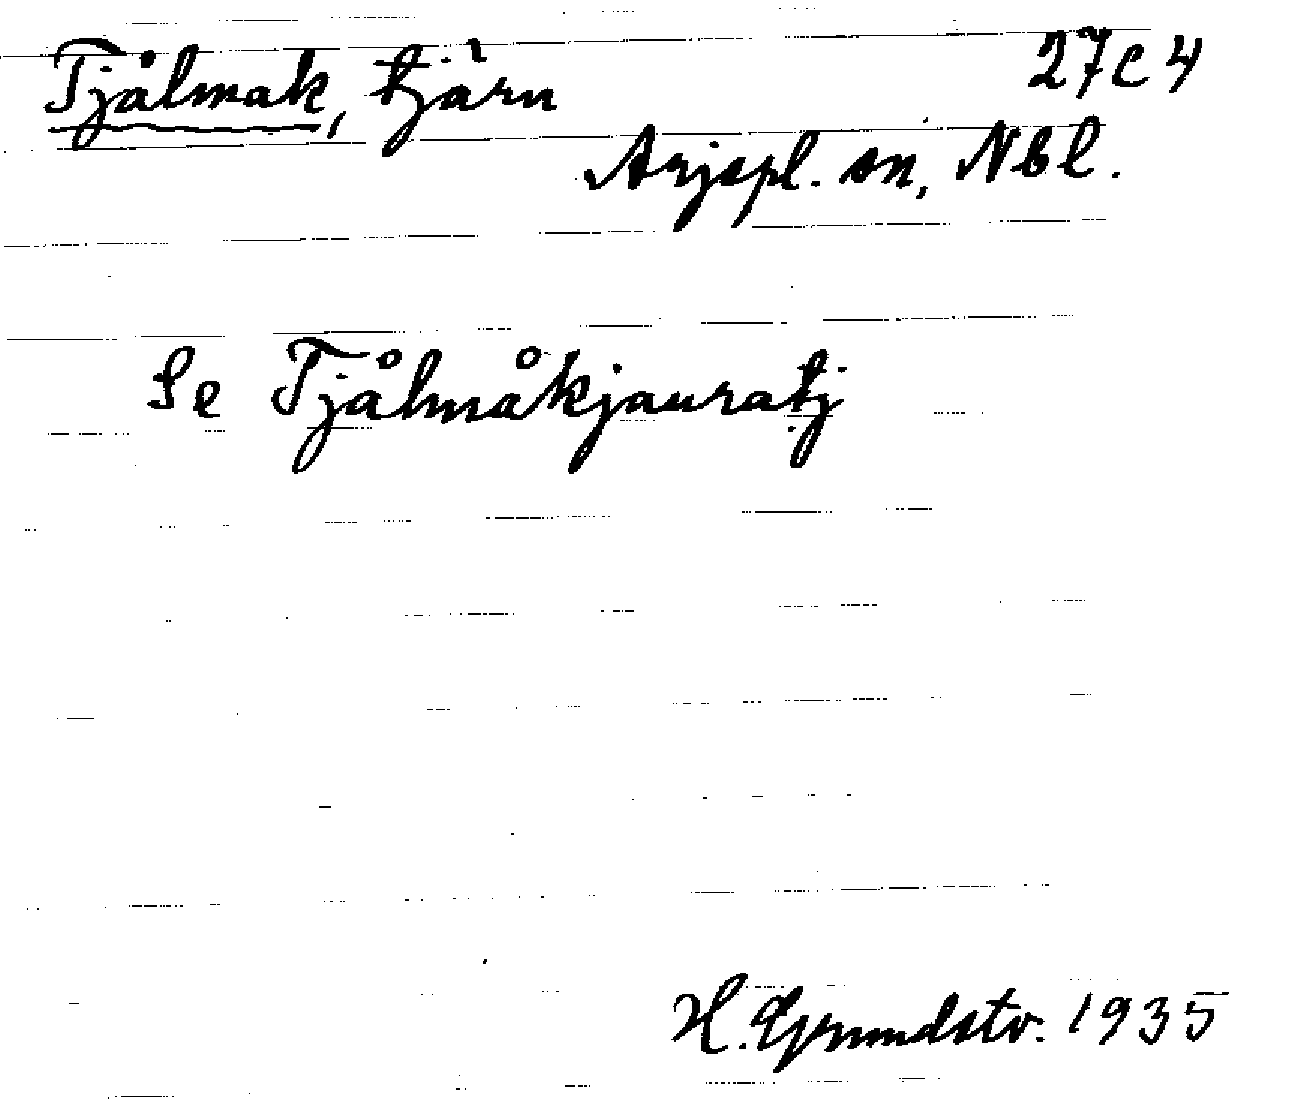 Tjålmak, tjärn 27C4
Arjepl. sn, Nbl.
Se Tjålmåkjauratj
H. Grundstr. 1935